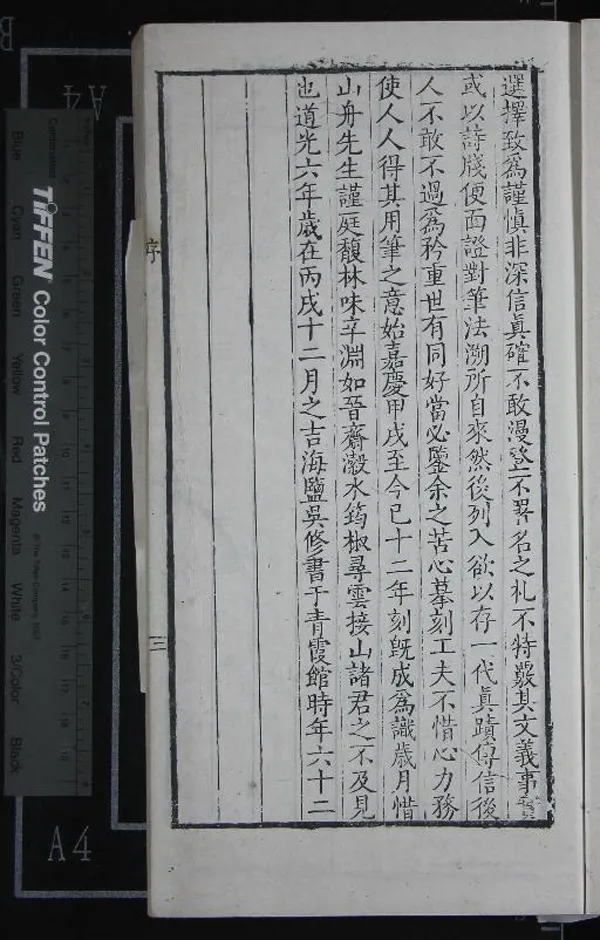 選擇致爲謹愼非深信眞確不敢漫登不署名之札不特嚴其文義事實
或以詩牋便面證對筆法溯所自來然後列入欲以存一代眞蹟傳信後
人不敢不過爲矜重世有同好當必鑒余之苦心摹刻工夫不惜心力務
使人人得其用筆之意始嘉慶甲戌至今已十二年刻旣成爲識歲月惜
山舟先生謹庭馥林味辛淵如晉齋瀔水筠椒尋雲接山諸君之不及見
也道光六年歲在丙戌十二月之吉海鹽吳修書于青霞館時年六十二
序
三
A4
A4
B
TIFFEN Color Control Patches
© The Tiffen Company, 2007
Centimetres
Blue Cyan Green Yellow Red Magenta White 3/Color Black